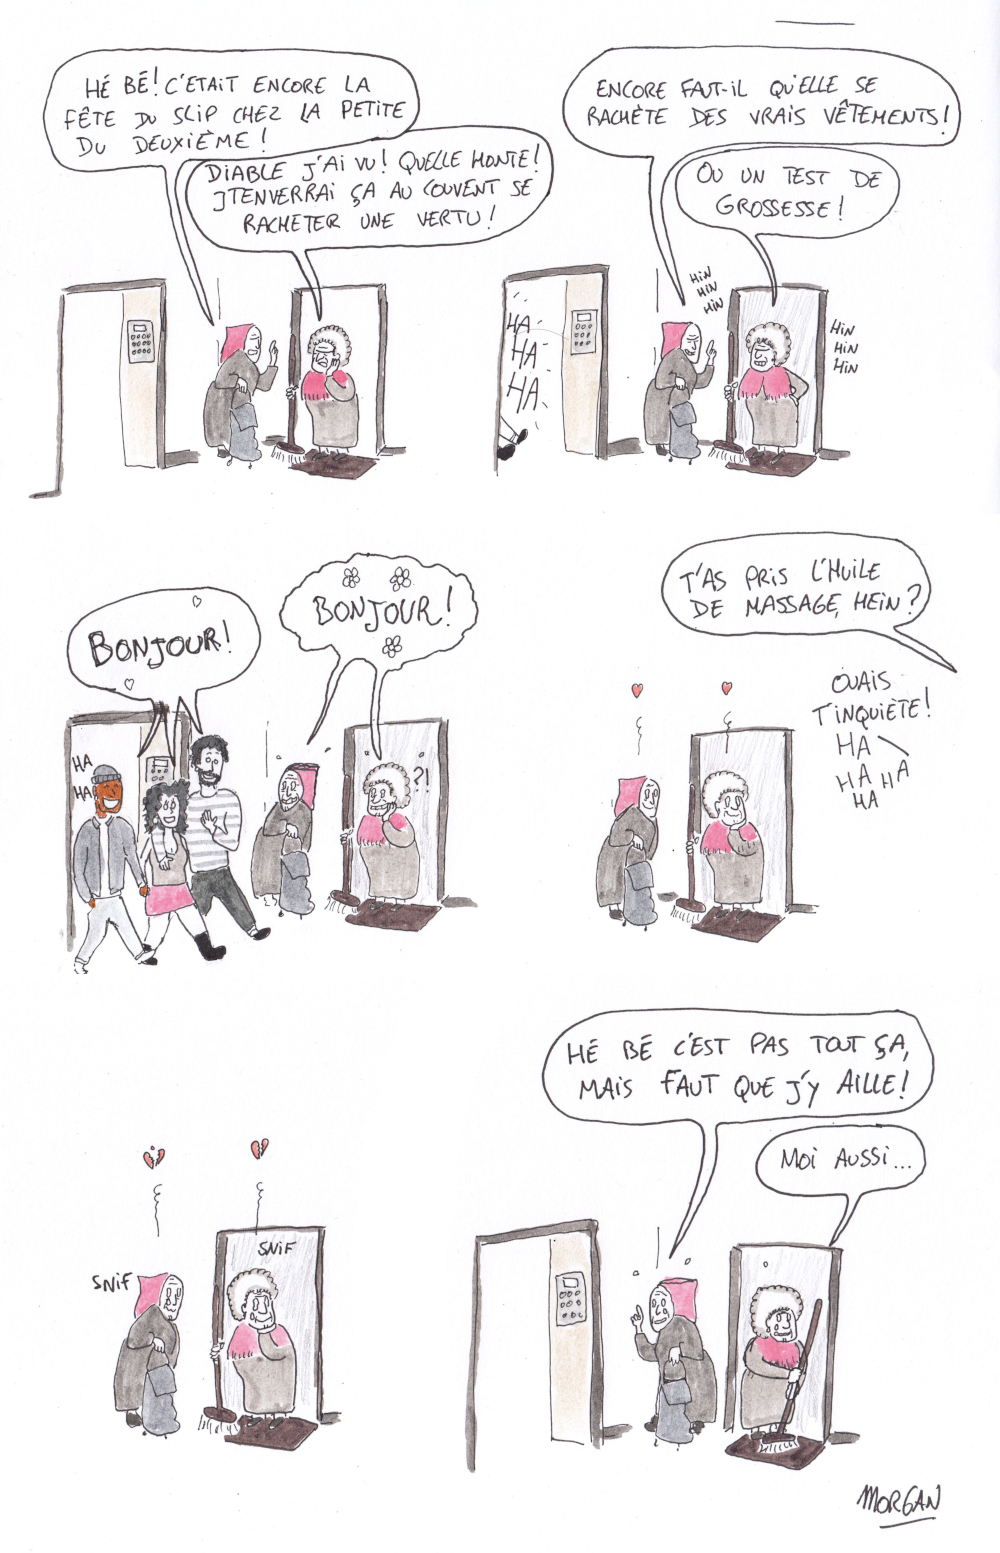 HÉ BÉ! C'ETAIT ENCORE LA
FÊTE DU SLIP CHEZ LA PETITE
DU DEUXIÈME!
DIABLE J'AI VU! QUELLE HONTE!
JTENVERRAI ÇA AU COUVENT SE
RACHETER UNE VERTU!
ENCORE FAUT-IL QU'ELLE SE
RACHÈTE DES VRAIS VÊTEMENTS!
OU UN TEST DE
GROSSESSE!
HA
HA
HA
HIN
HIN
HIN
HIN
HIN
HIN
BONJOUR!
BONJOUR!
HA
HA
?!
T'AS PRIS L'HUILE
DE MASSAGE, HEIN?
OUAIS
T'INQUIÈTE!
HA
HA HA
HA
SNIF
SNIF
HÉ BÉ C'EST PAS TOUT ÇA,
MAIS FAUT QUE J'Y AILLE!
MOI AUSSI...
MORGAN